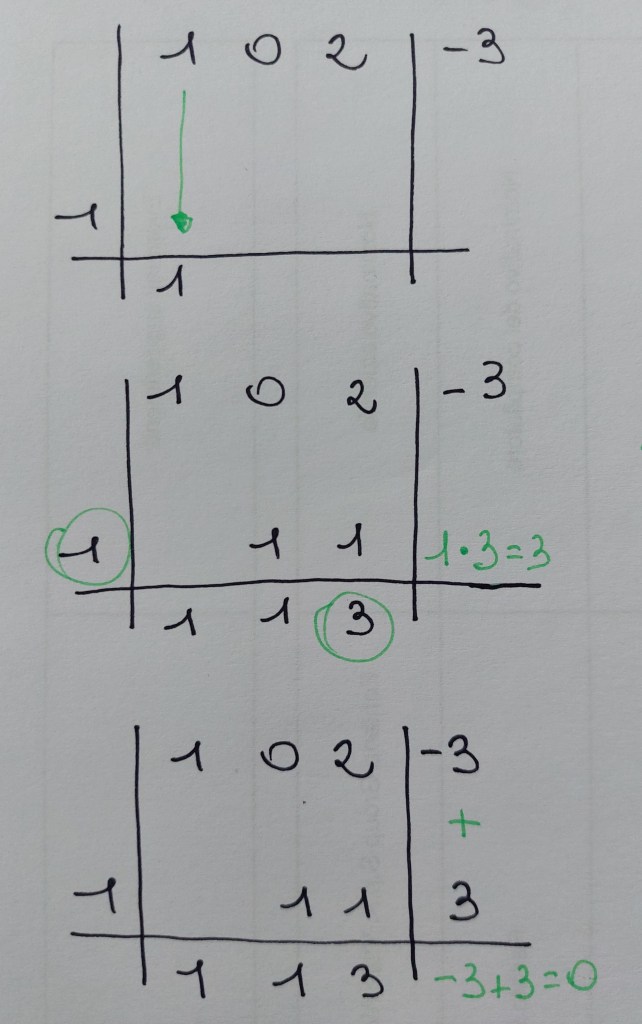 1 0 2 -3
1
1
1 0 2 -3
1 1 1 1·3=3
1 1 3
1 0 2 -3
+
1 1 1 3
1 1 3 -3+3=0